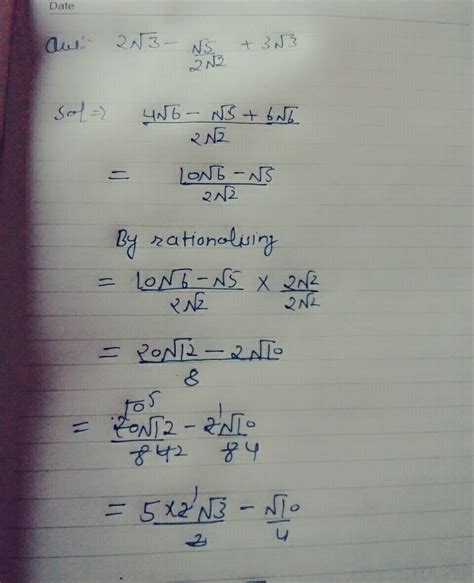 Date
Qus:- 2√3 - √5/2√2 + 3√3
Sol ⇒ 4√6 - √5 + 6√6 / 2√2
= 10√6 - √5 / 2√2
By rationalising
= 10√6 - √5 / 2√2 × 2√2 / 2√2
= 20√12 - 2√10 / 8
= 20√12 / 8 4 2 - 2√10 / 8 4
= 5×2√3 / 2 - √10 / 4